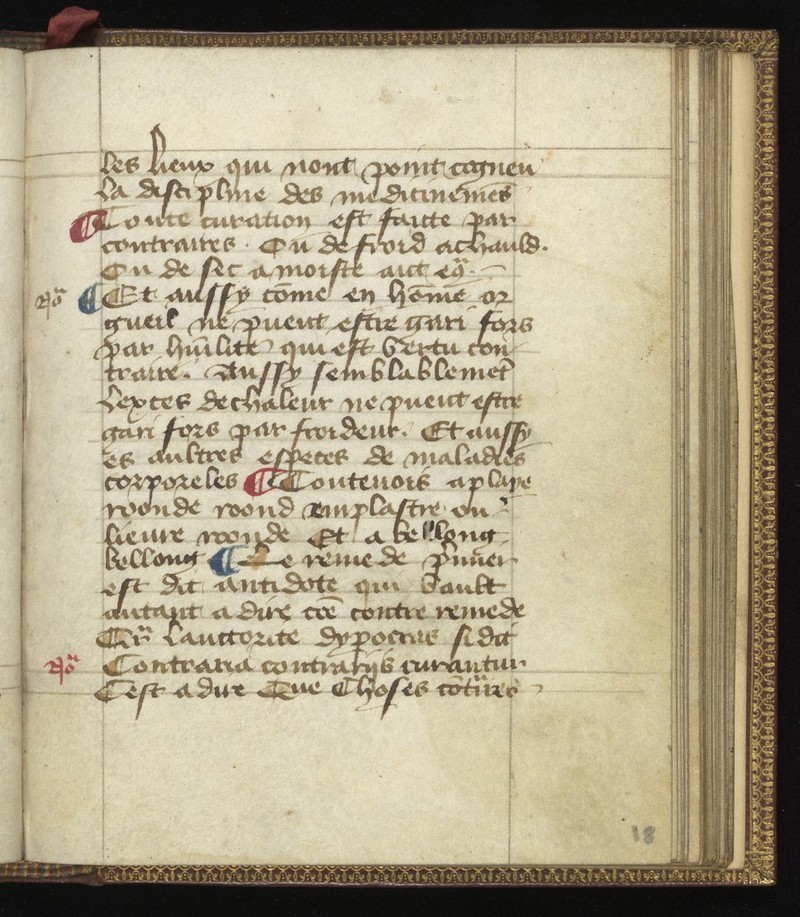 les lieux qui nont point cogneu
la discipline des medicinemēs
¶ Toute curation est faicte par
contraires . Ou de froid a chauld .
Ou de sec a moiste
Noᵃ ¶ Et aussy cōme en hōme or
gueil ne pueut estre gari fors
par hūilite qui est vertu con
traire . Aussy semblablemēt
lexces de chaleur ne pueut estre
gari fors par froideur . Et aussy
es aultres especes de maladies
corporeles ¶ Toutevois a plaie
roonde roond emplastre ou
lieure roonde Et a bellong
bellong ¶ Le remede p̄mier
est dit antidote qui vault
autant a dire cōe contre remede
lauctorite dypocras si dit
Noᵃ Contraria contrarijs curantur
Cest a dire Que Choses cōtᵃires
18